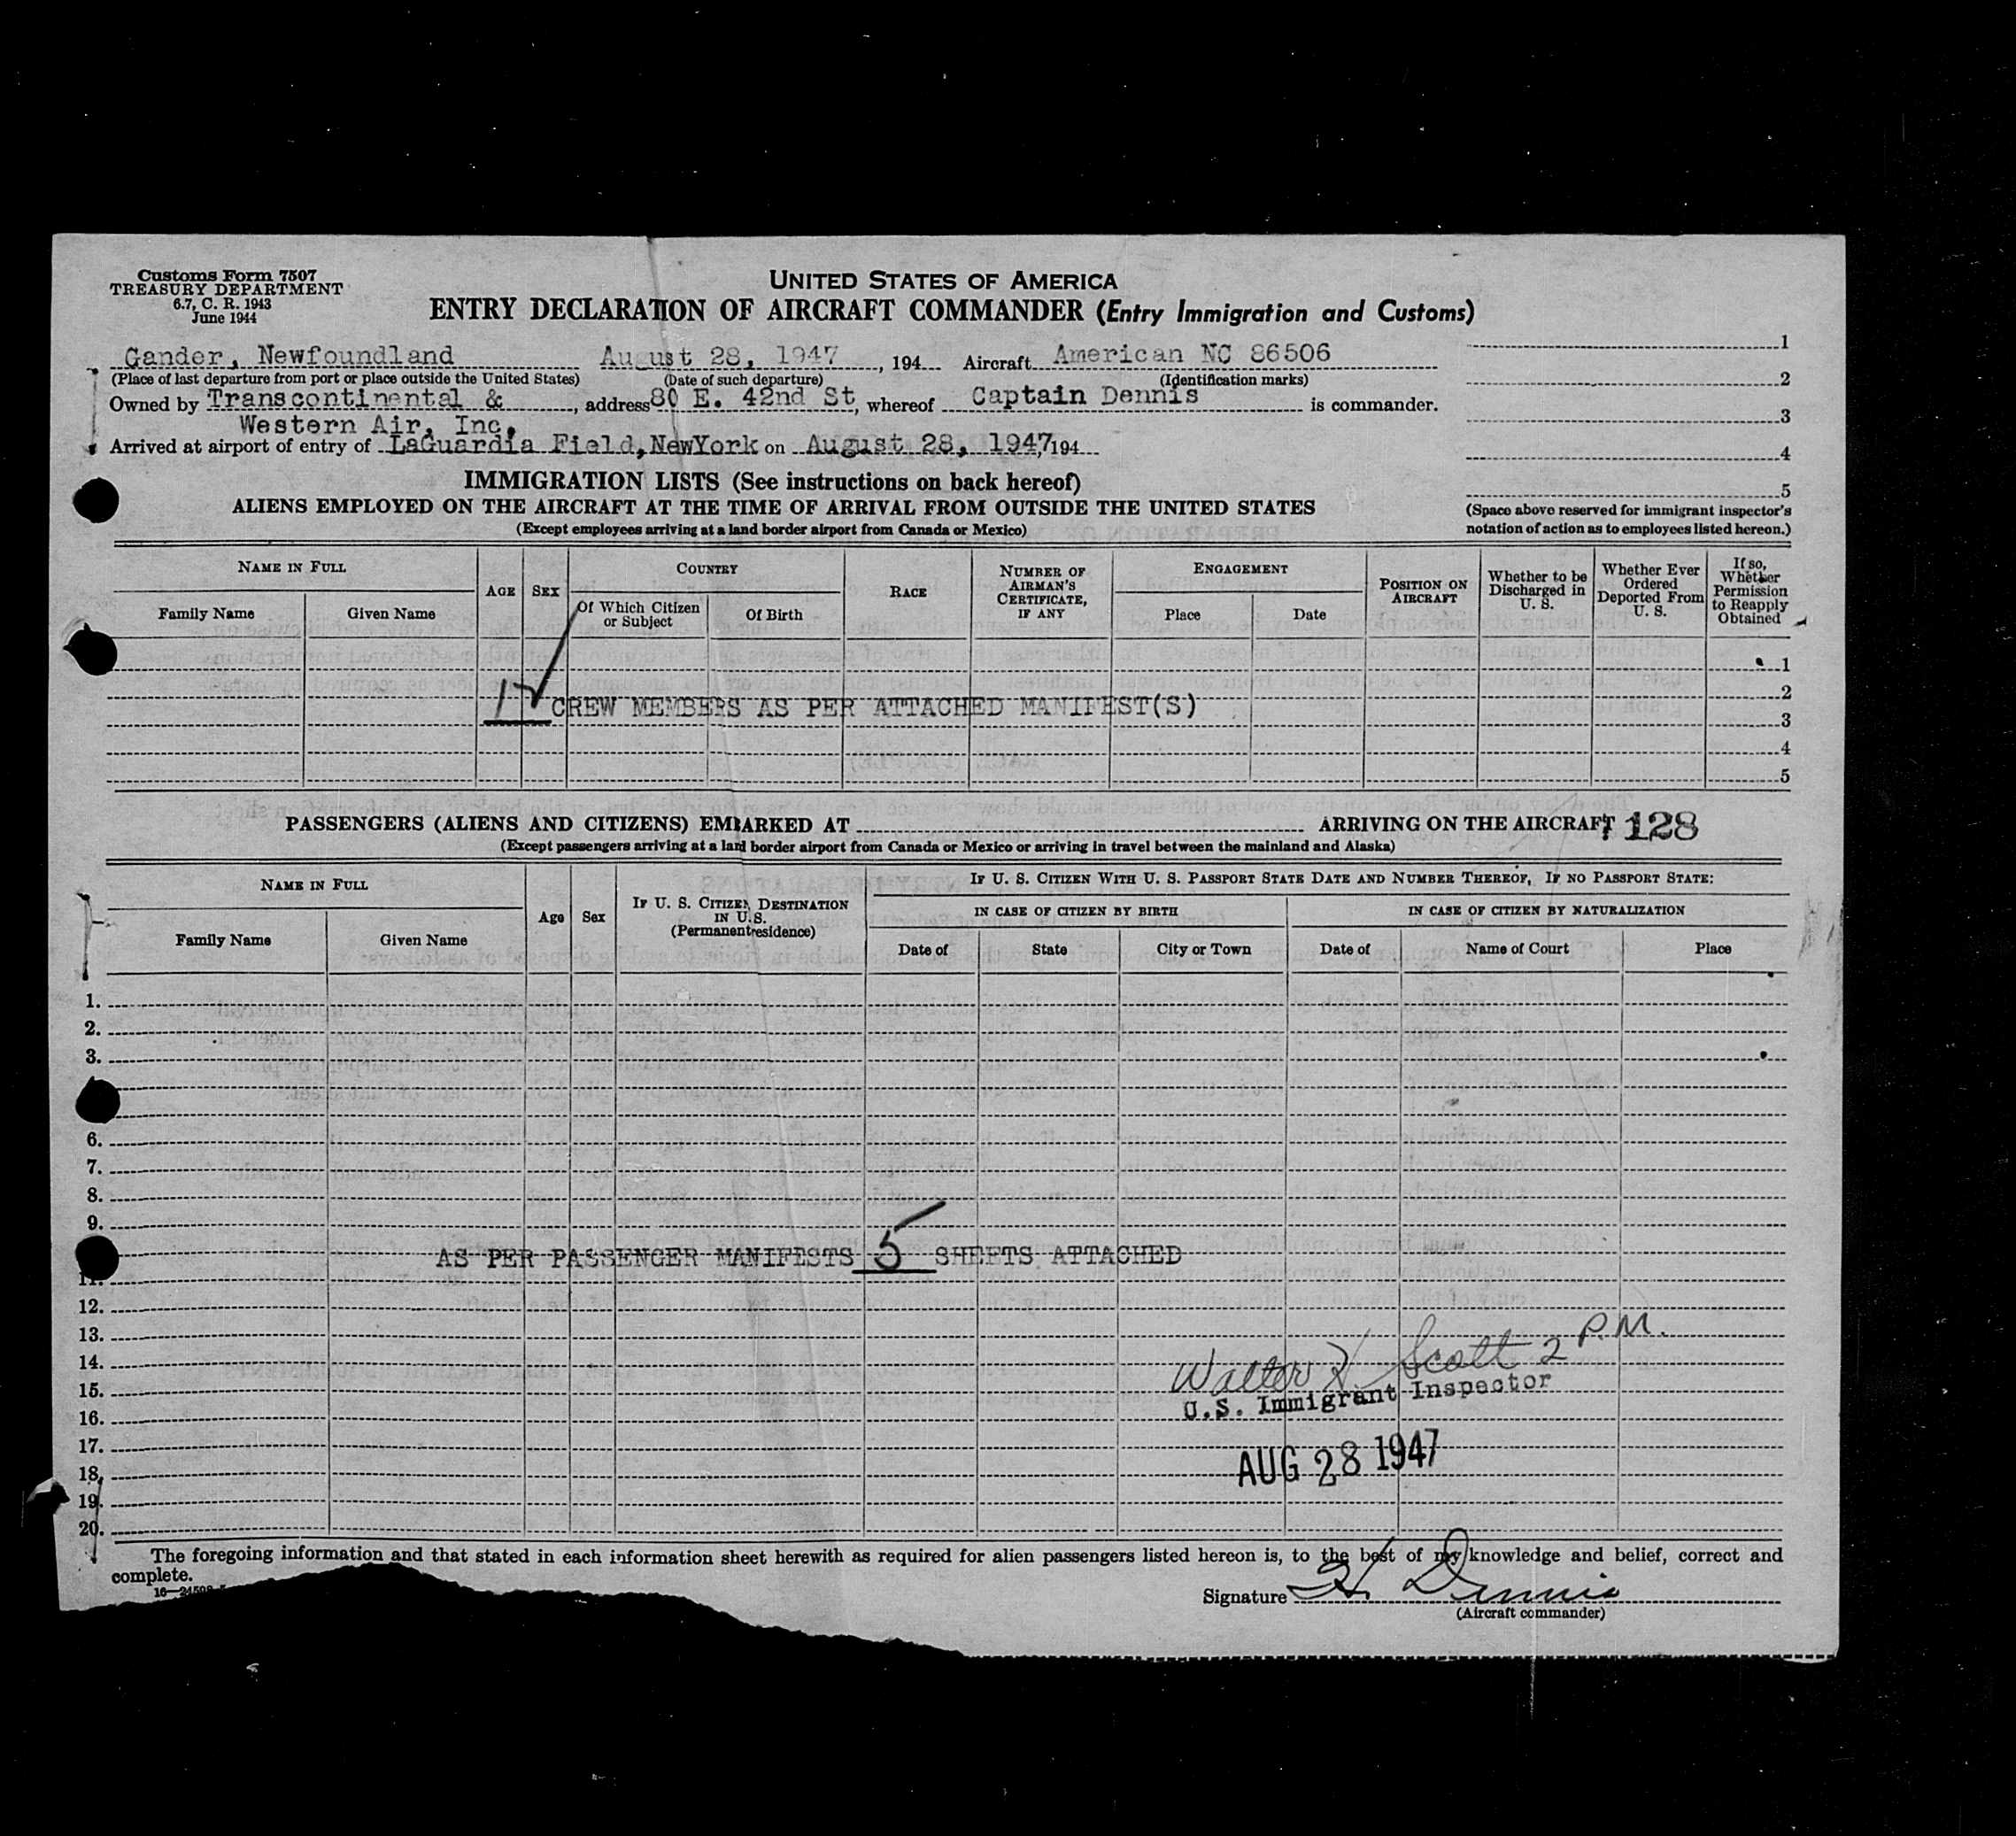 Customs Form 7507
TREASURY DEPARTMENT
6.7, C. R. 1943
June 1944
UNITED STATES OF AMERICA
ENTRY DECLARATION OF AIRCRAFT COMMANDER (Entry Immigration and Customs)
Gander, Newfoundland August 28, 1947, 194 Aircraft American NC 86506
(Place of last departure from port or place outside the United States) (Date of such departure) (Identification marks)
Owned by Transcontinental & , address 80 E. 42nd St, whereof Captain Dennis is commander.
Western Air, Inc.
Arrived at airport of entry of LaGuardia Field, NewYork on August 28, 1947, 194
1
2
3
4
5
(Space above reserved for immigrant inspector's
notation of action as to employees listed hereon.)
IMMIGRATION LISTS (See instructions on back hereof)
ALIENS EMPLOYED ON THE AIRCRAFT AT THE TIME OF ARRIVAL FROM OUTSIDE THE UNITED STATES
(Except employees arriving at a land border airport from Canada or Mexico)
NAME IN FULL
Family Name Given Name
AGE
SEX
COUNTRY
Of Which Citizen
or Subject
Of Birth
RACE
NUMBER OF
AIRMAN'S
CERTIFICATE,
IF ANY
ENGAGEMENT
Place Date
POSITION ON
AIRCRAFT
Whether to be
Discharged in
U. S.
Whether Ever
Ordered
Deported From
U. S.
If so,
Whether
Permission
to Reapply
Obtained
1
2
CREW MEMBERS AS PER ATTACHED MANIFEST(S)
3
4
5
PASSENGERS (ALIENS AND CITIZENS) EMBARKED AT ARRIVING ON THE AIRCRAFT 128
(Except passengers arriving at a land border airport from Canada or Mexico or arriving in travel between the mainland and Alaska)
NAME IN FULL
Family Name Given Name
Age
Sex
IF U. S. CITIZEN, DESTINATION
IN U.S.
(Permanent residence)
IF U. S. CITIZEN WITH U. S. PASSPORT STATE DATE AND NUMBER THEREOF, IF NO PASSPORT STATE:
IN CASE OF CITIZEN BY BIRTH IN CASE OF CITIZEN BY NATURALIZATION
Date of State City or Town Date of Name of Court Place
1.
2.
3.
6.
7.
8.
9.
AS PER PASSENGER MANIFESTS 5 SHEETS ATTACHED
11.
12.
13.
14.
15.
16.
17.
18.
19.
20.
Walter Scott 2 P.M.
U.S. Immigrant Inspector
AUG 28 1947
The foregoing information and that stated in each information sheet herewith as required for alien passengers listed hereon is, to the best of my knowledge and belief, correct and
complete.
Signature H. Dennis
(Aircraft commander)